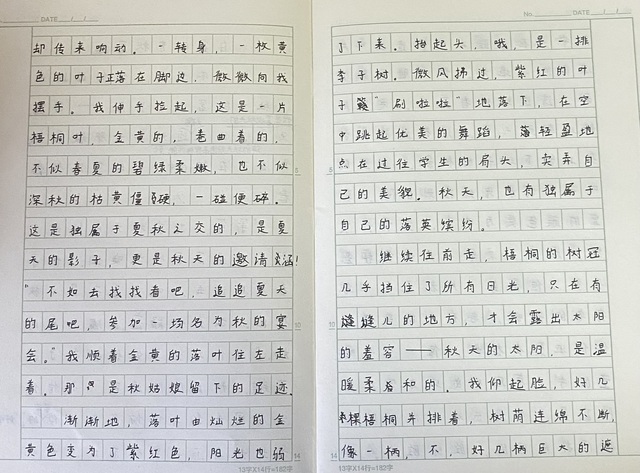 DATE / /
却传来响动。一转身，一枚黄
色的叶子正落在脚边，微微向我
摆手。我伸手捡起，这是一片
梧桐叶，金黄的，卷曲着的，
不似春夏的碧绿柔嫩，也不似
深秋的枯黄僵硬，一碰便碎。
这是独属于夏秋之交的，是夏
天的影子，更是秋天的邀请函！
"不如去找找看吧，追追夏天
的尾吧，参加一场名为秋的宴
会。"我顺着金黄的落叶往左走
着。那是秋姑娘留下的足迹。
渐渐地，落叶由灿烂的金
黄色变为了紫红色，阳光也弱
13字X14行=182字
No. DATE / /
了下来。抬起头，哦，是一排
李子树。微风拂过，紫红的叶
子"刷啦啦"地落下，在空
中跳起优美的舞蹈，落轻盈地
点在过往学生的肩头，卖弄自
己的美貌。秋天，也有独属于
自己的落英缤纷。
继续往前走，梧桐的树冠
几乎挡住了所有日光，只在有
缝儿的地方，才会露出太阳
的羞容——秋天的太阳，是温
暖柔和的。我仰起脸，好几
棵梧桐并排着，树荫连绵不断，
像一柄，不，好几柄巨大的遮
13字X14行=182字